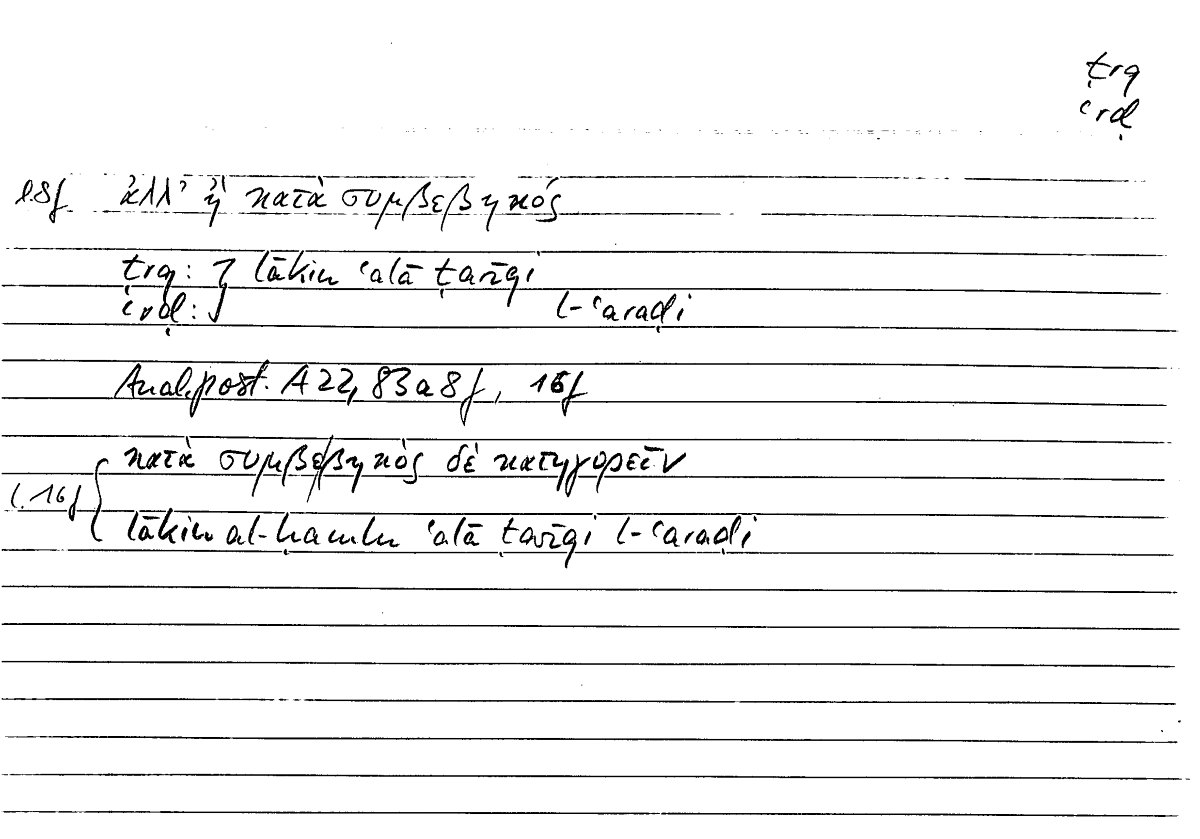 ṭrq
ʿrḍ
l.8f ἀλλ' ἢ κατὰ συμβεβηκός
ṭrq: } lākin ʿalā ṭarīqi
ʿrḍ: l-ʿaraḍi
Anal.post. A 22, 83a8f, 16f
κατὰ συμβεβηκὸς δὲ κατηγορεῖν
l.16f {
lākin al-ḥamlu ʿalā ṭarīqi l-ʿaraḍi